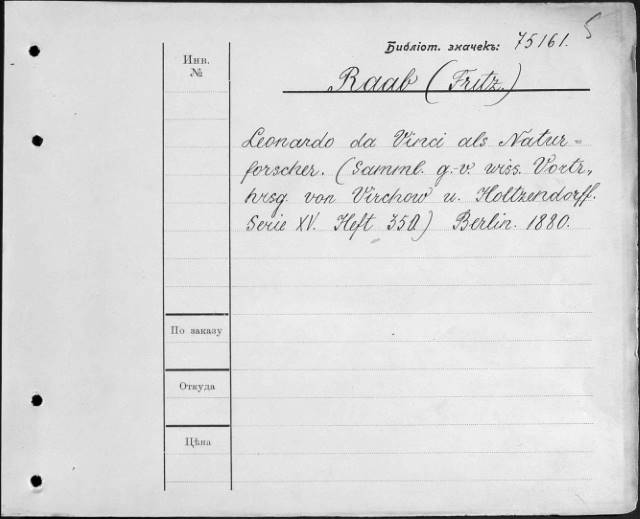 5
Библіот. значекъ: 75161.
Инв.
№
Raab (Fritz.)
Leonardo da Vinci als Natur=
forscher. (Samml. g.-v. wiss. Vortr.,
hrsg. von Virchow u. Holtzendorff.
Serie XV. Heft 350) Berlin. 1880.
По заказу
Откуда
Цѣна